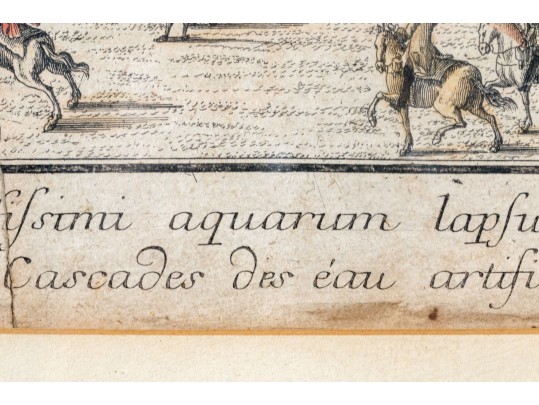 ſiſsimi aquarum lapſu
Cascades des éau artifi